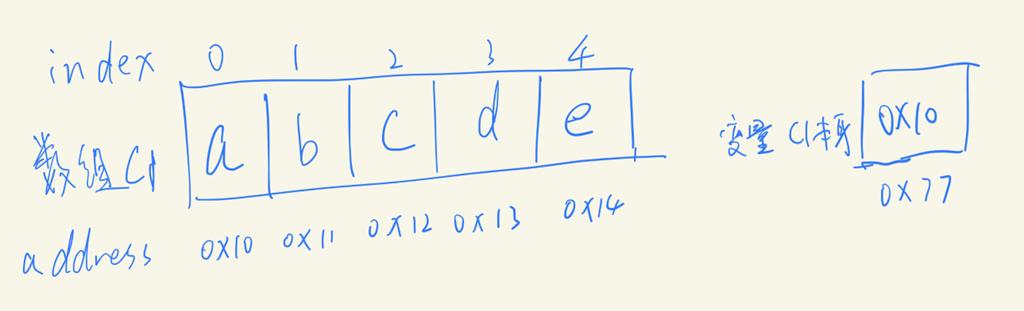 index 0 1 2 3 4
数组C1 a b c d e
address 0X10 0X11 0X12 0X13 0X14
变量C1本身 0X10
0X77